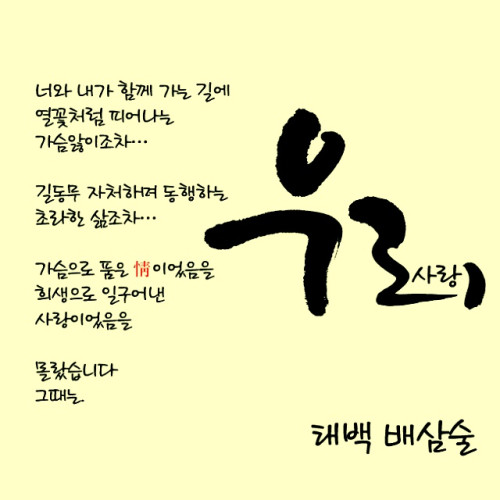 너와 내가 함께 가는 길에
열꽃처럼 피어나는
가슴앓이조차...
길동무 자처하며 동행하는
초라한 삶조차...
가슴으로 품은 情이었음을
희생으로 일구어낸
사랑이었음을
몰랐습니다
그때는.
우리,
사랑
태백 배삼술